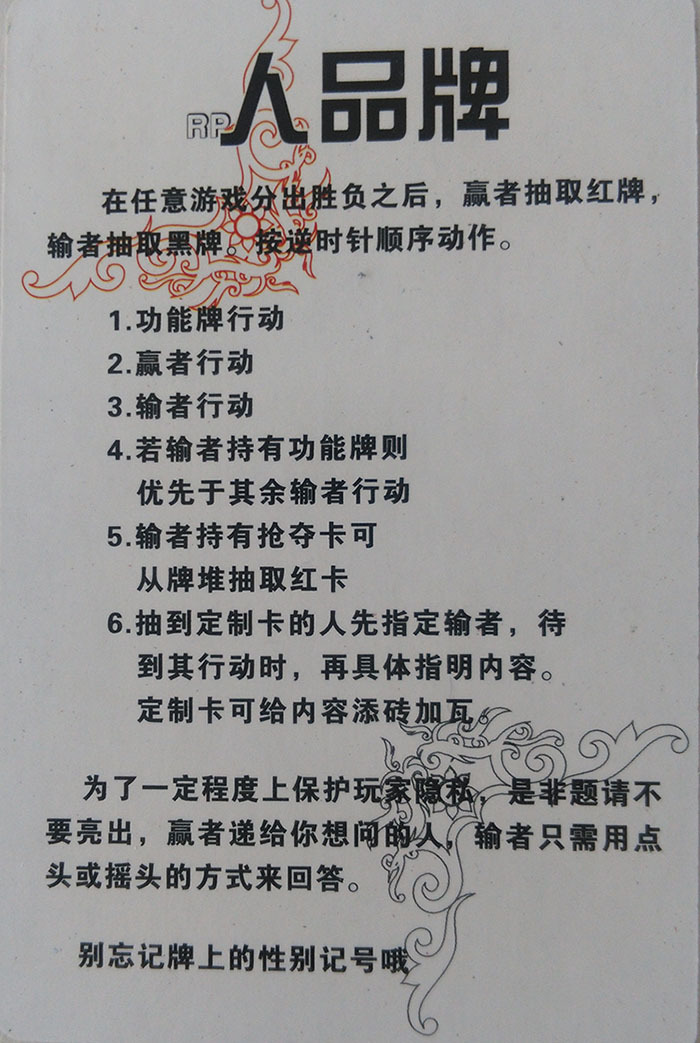 RP人品牌
在任意游戏分出胜负之后，赢者抽取红牌，
输者抽取黑牌。按逆时针顺序动作。
1.功能牌行动
2.赢者行动
3.输者行动
4.若输者持有功能牌则
优先于其余输者行动
5.输者持有抢夺卡可
从牌堆抽取红卡
6.抽到定制卡的人先指定输者，待
到其行动时，再具体指明内容。
定制卡可给内容添砖加瓦
为了一定程度上保护玩家隐私，是非题请不
要亮出，赢者递给你想问的人，输者只需用点
头或摇头的方式来回答。
别忘记牌上的性别记号哦